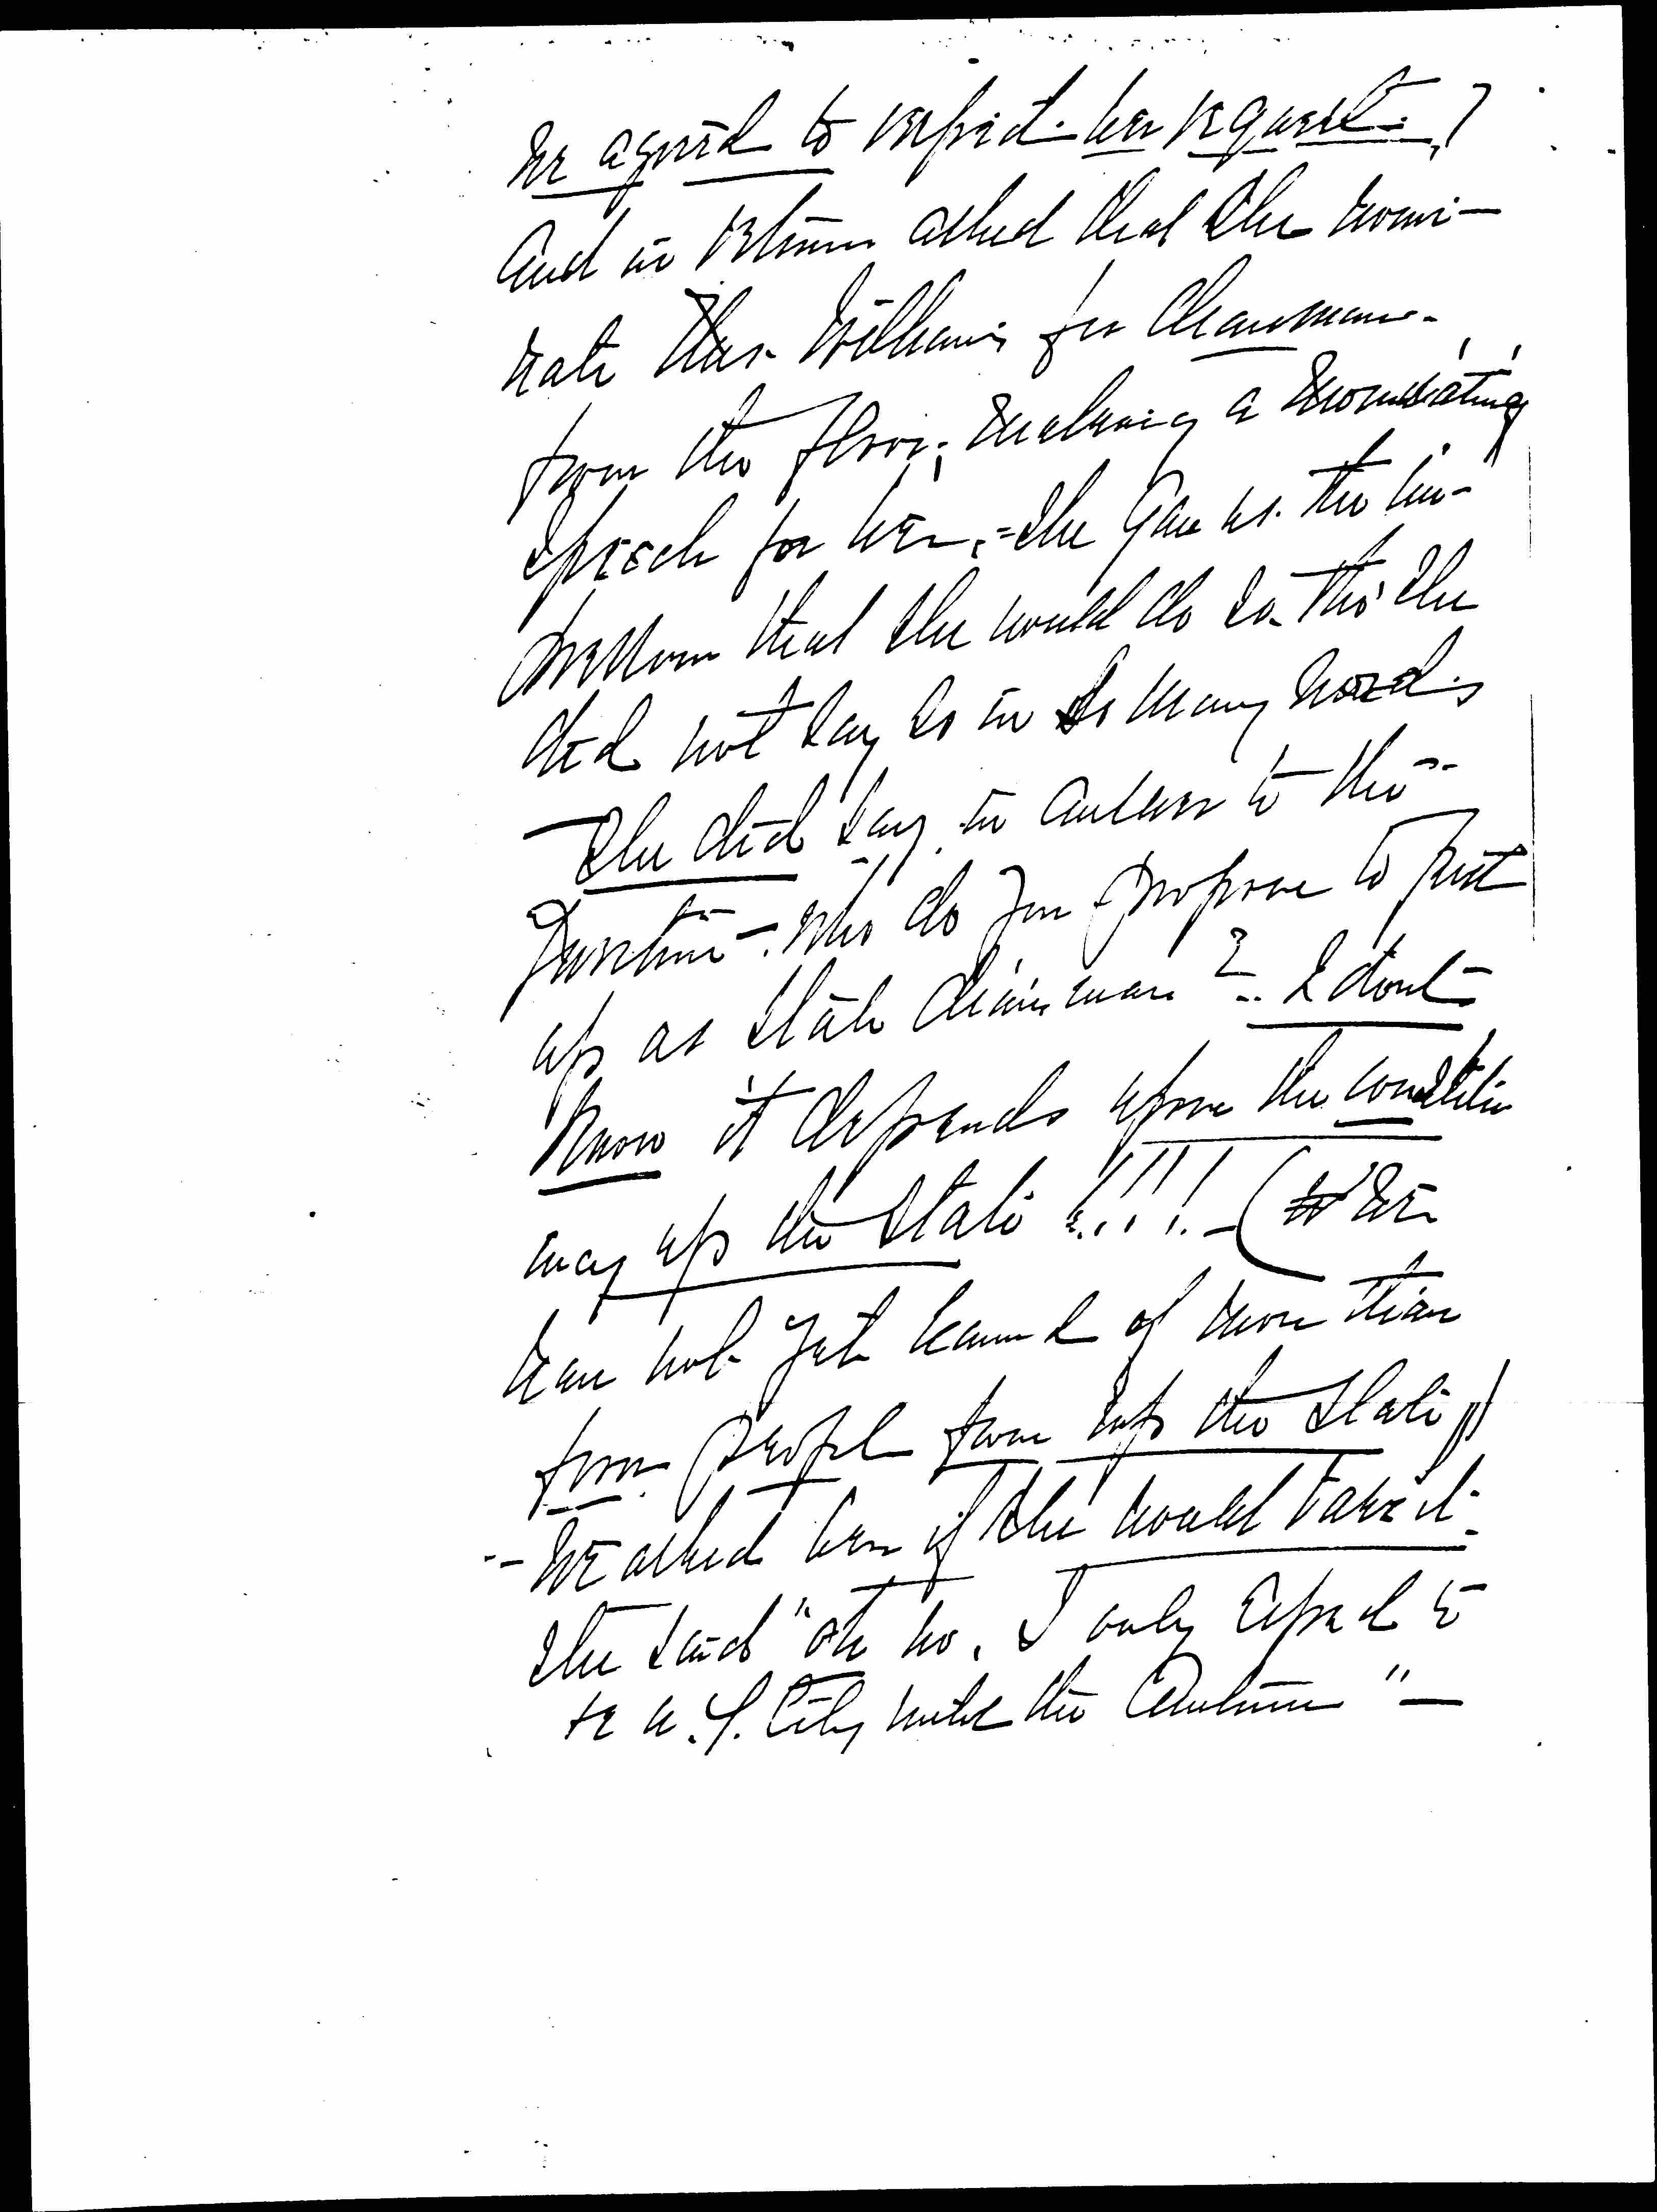 we agreed to respect her request.)
And in return asked that she nomi-
nate Mrs. Williams for Chairman-
from the floor; making a nominating
speech for her, = she gave us the im-
pression that she would do so - tho' she
did not say so in so many words
— She did say, in answer to the -
question - . Who do you propose to put
up as State Chairman? .. I dont -
know it depends upon the condition
may up the State !!!! - (We
have not yet learned of more than
four people from up the State))
-- We asked her if she would take it -
She said "oh no. I only expect to
be N.Y. City until the Autumn" —